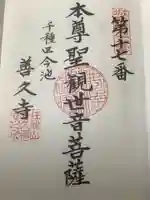 第十七番
本尊聖観世音菩薩
千種区今池
善久寺